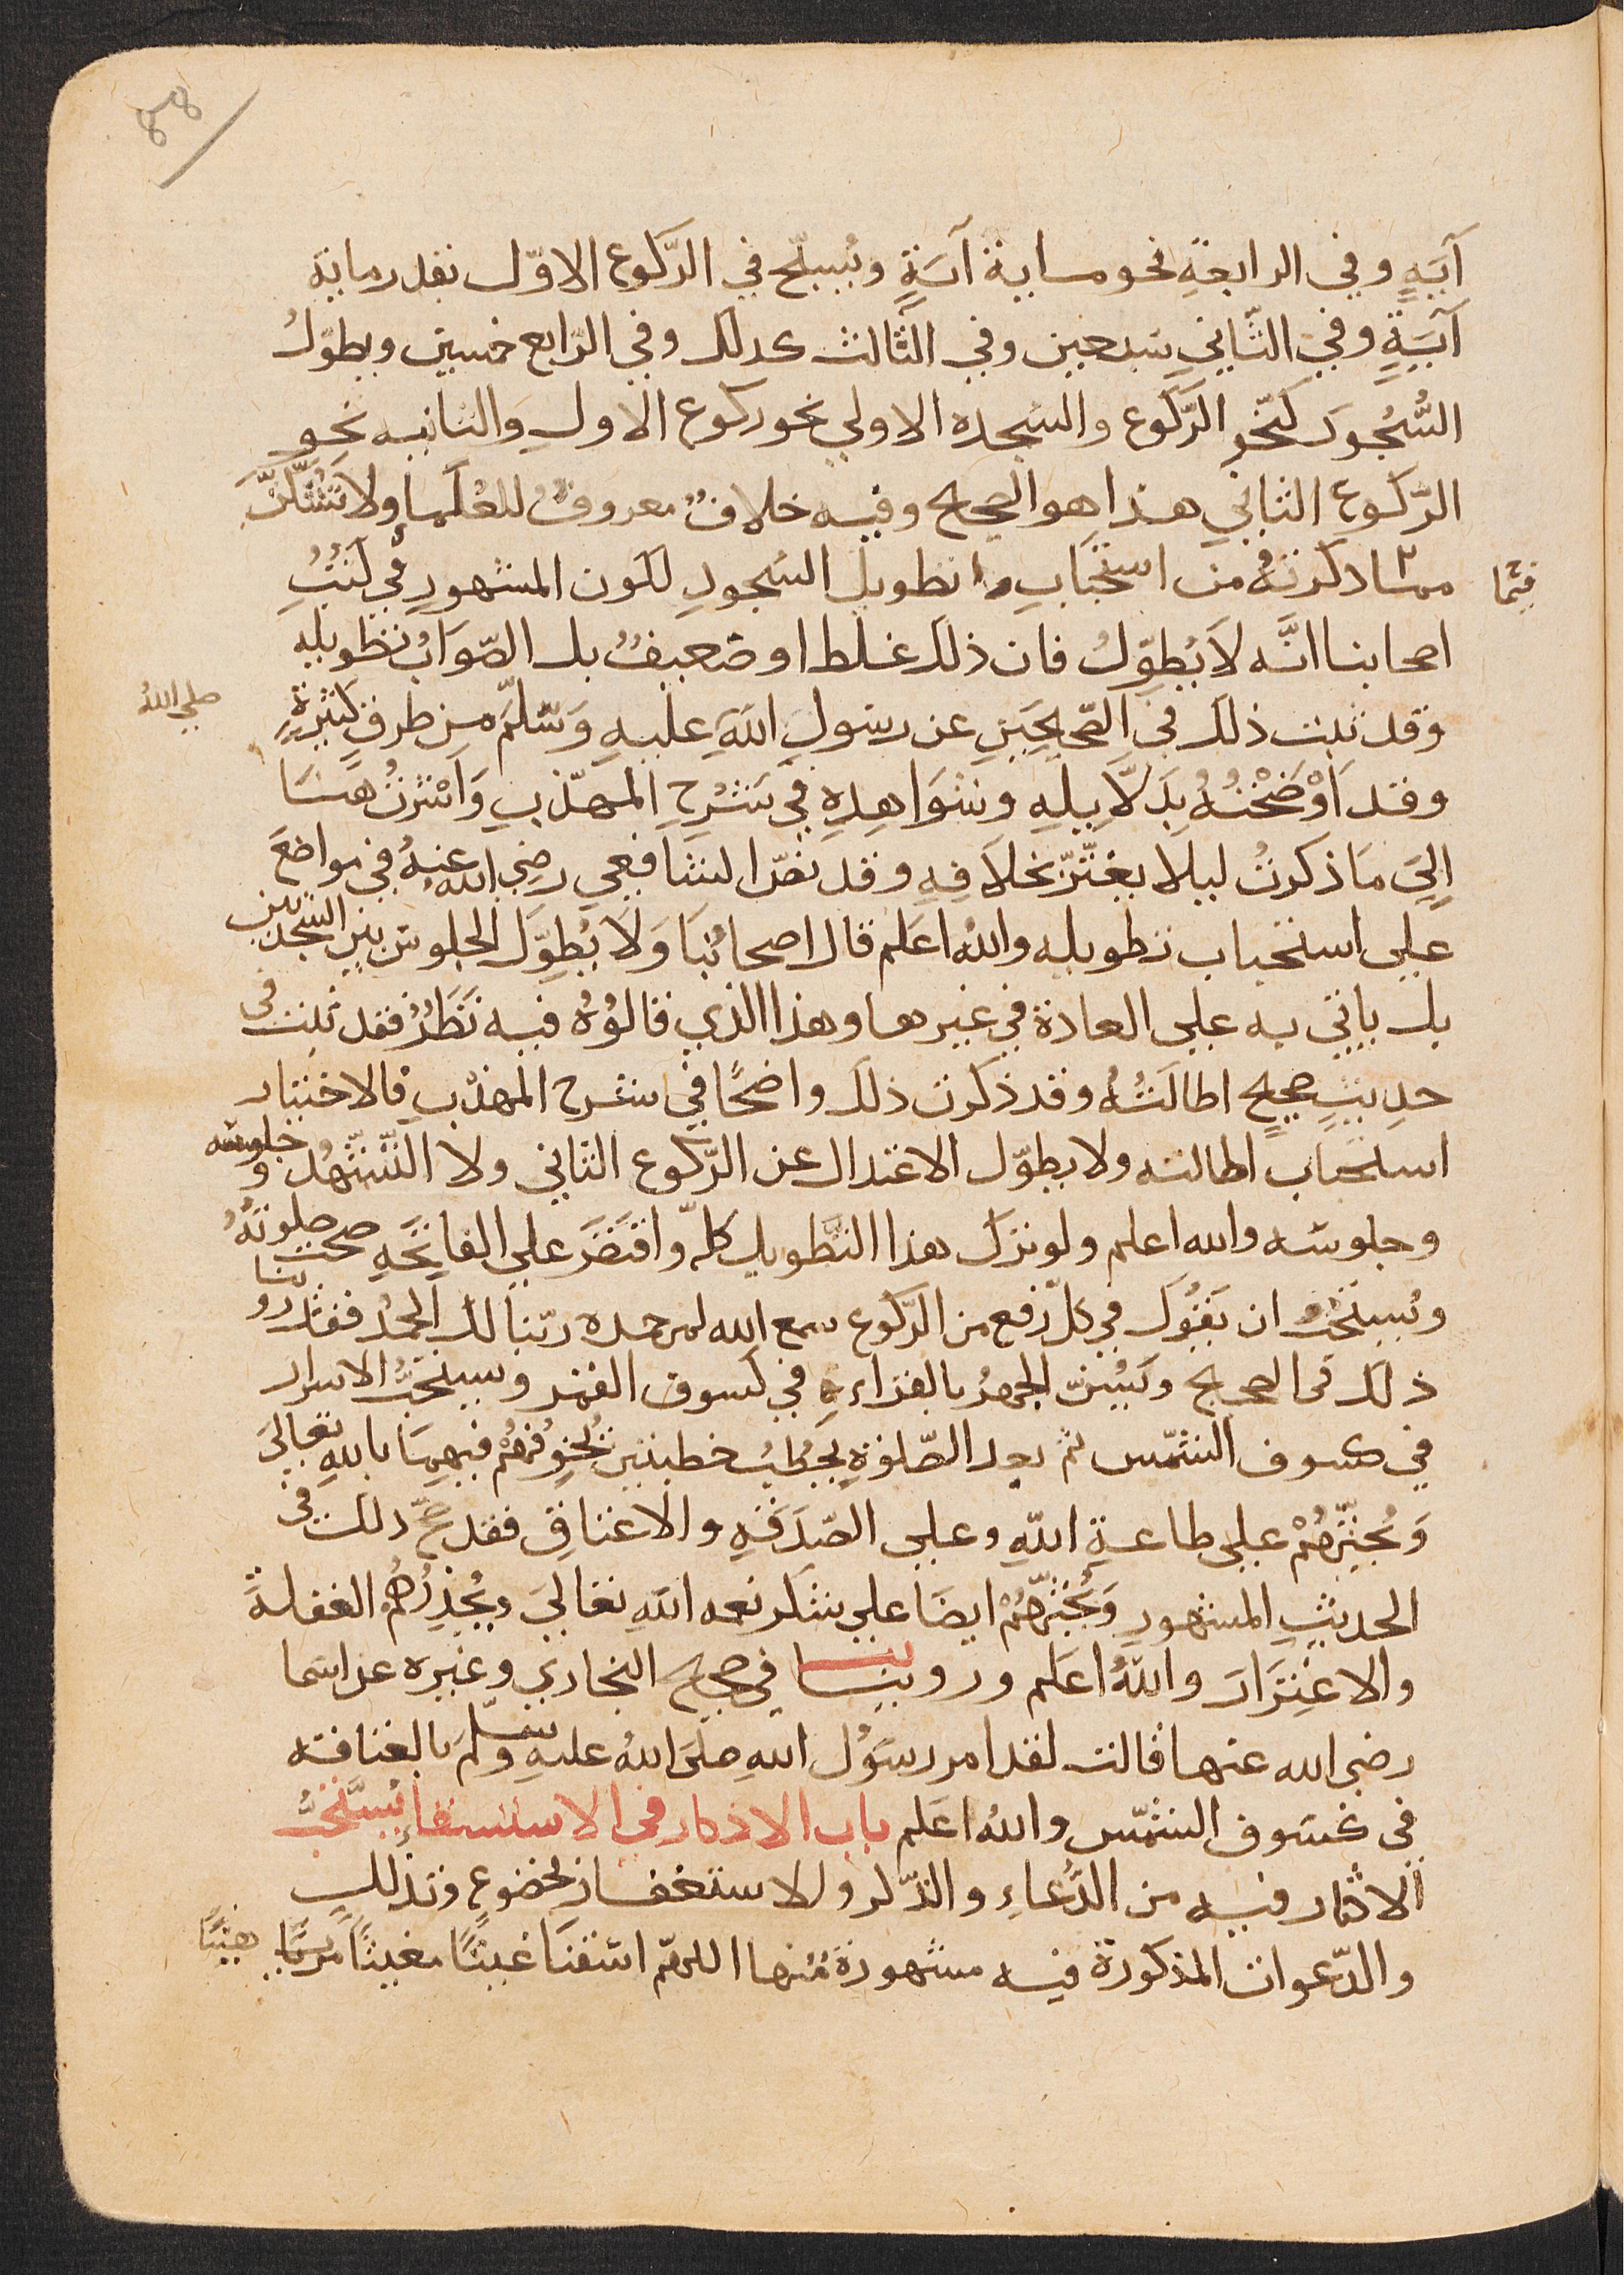 آيَةٍ وفي الرابعةِ نحو ماية آيَةٍ ويُسبّح في الرّكوع الاوّل بقدر ماية
آيَةٍ وفي الثّاني سَبعين وفي الثالث كذلك وفي الرّابع خمسين ويطوّلُ
السُّجُودَ كنَحْوِ الرّكوع والسّجدة الاولي نحو ركوع الاولِ والثانيه نحو
الرّكوعِ الثاني هذا هو الصحيح وفيه خلافٌ معروفٌ للعُلَماءِ ولا تَشُكَّنَّ
فيما
مما ذكرتُهُ من استحْبَابِ تطويل السّجودِ لكون المشهورِ في كُتُبِ
اصحابنا انَّه لَا يُطوِّلُ فان ذلك غلط او ضعيفٌ بل الصّوَابُ تطويله
وقد ثبت ذلك في الصّحيحَينِ عن رسولِ اللهِ عليهِ وَسَلّمَ من طرقٍ كثيرةٍ
صلي اللهُ
وقد اَوْضَحْتُهُ بِدَلَايِلِهِ وشَوَاهِدِهِ في شَرْحِ المهذّبِ وَاشَرْتُ هنَا
إِلي مَا ذكرتُ ليلا يغتّرّ بخلَافِهِ وقد نصّ الشافعي رضي الله عنهُ في مواضعَ
علي استحباب تطويله واللهُ اعلم قال اصحابُنَا وَلَا يُطوِّل الجلوس بين السّجدتين
بل ياتي به علي العادة في غيرها وهذا الذي قالوُهُ فيه نَظَرٌ فقد ثبت في
حدِيثٍ صحيحٍ اطالَتُهُ وقد ذكرت ذلك واضحًا في شرح المهذّبِ فالاختيار
استحباب اطالته ولا يطوّل الاعتدال عن الرّكوع الثاني ولا التّشهُّد و جلوسه
وجلوسَه والله اعلم ولو ترك هذا التّطويل كلّه واقتَصَرَ علي الفاتحَةِ صحت صلوتُهُ
ويُستحَبُّ ان يَقُولَ في كلّ رَفع من الرّكوع سمع الله لمن حمده ربّنا لك الحمدُ فقد روينا
ذلك في الصحيح ويُسَنّ الجهرُ بالقراءةِ في كسوف القمر ويستَحَبُّ الاسرار
في كسوف الشّمس ثم بعد الصّلوةِ يَخطُبُ خطبتين يُخَوِّفُهُمْ فيهِمَا باللهِ تعالي
وَيُحثّهُمْ علي طاعةِ اللهِ وعلي الصّدَقَةِ والاعتاقِ فقد صحَّ ذلك في
الحديثِ المشهورِ وَيُحثّهُمْ ايضَا علي شكر نعمه اللهِ تعاليَ ويُحذِّرُهُمُ الغفلةَ
والاغترَارَ واللهُ اعلم وروينا في صحيح البخاري وغيره عن اسَما
رضي الله عنها قالت لقد امر رسُولُ اللهِ صلي اللهُ عليهِ وسَلَّمَ بالعتاقه
في كسَوف الشمّس واللهُ اعَلم باب الاذكار في الاستسقاءِ يُستَحَبُّ
الاكثار فيه من الدُّعاءِ والذّكر والاستغفار بخضوعٍ وتذَلّلٍ
والدّعوات المذكورة فيه مشهورةٌ منها اللهمّ اسْقنَا غيثًا مغيثًا مريًا هنيًا